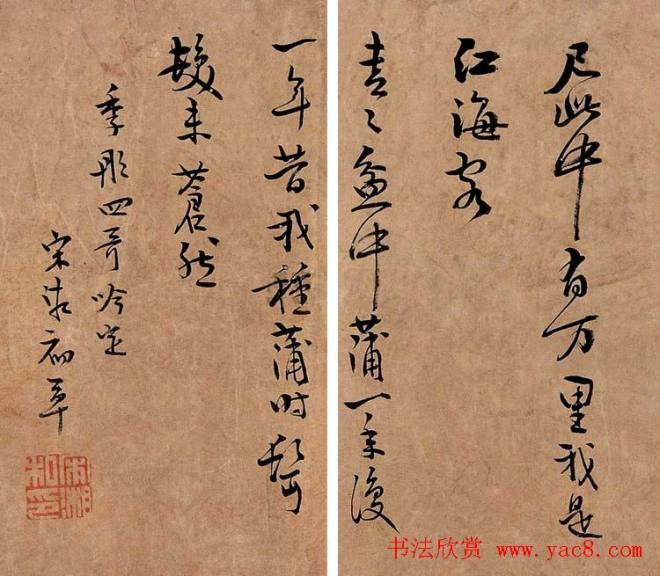 尺此中有万里我是
江海客
青〻盆中蒲一年復
一年昔我種蒲时
未蒼然
季彤四哥吟定
宋湘初草
书法欣赏 www.yac8.com